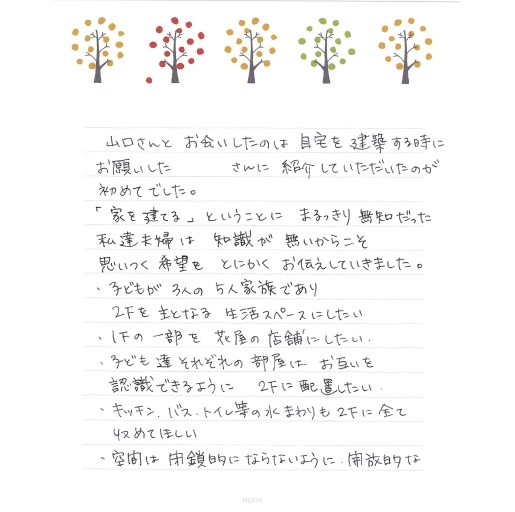 山口さんと お会いしたのは 自宅を 建築する時に
お願いした さんに 紹介していただいたのが
初めてでした。
「家を建てる」ということに まるっきり無知だった
私達夫婦は 知識が 無いからこそ
思いつく希望を とにかく お伝えしていきました。
・子どもが 3人の 5人家族であり
2Fを 主となる 生活スペースにしたい
・1Fの 一部を 花屋の店舗にしたい.
・子ども達それぞれの 部屋は お互いを
認識できるように 2Fに配置したい.
・キッチン.バス.トイレ等の水まわりも2Fに全て
収めてほしい
・空間は 閉鎖的にならないように.開放的な